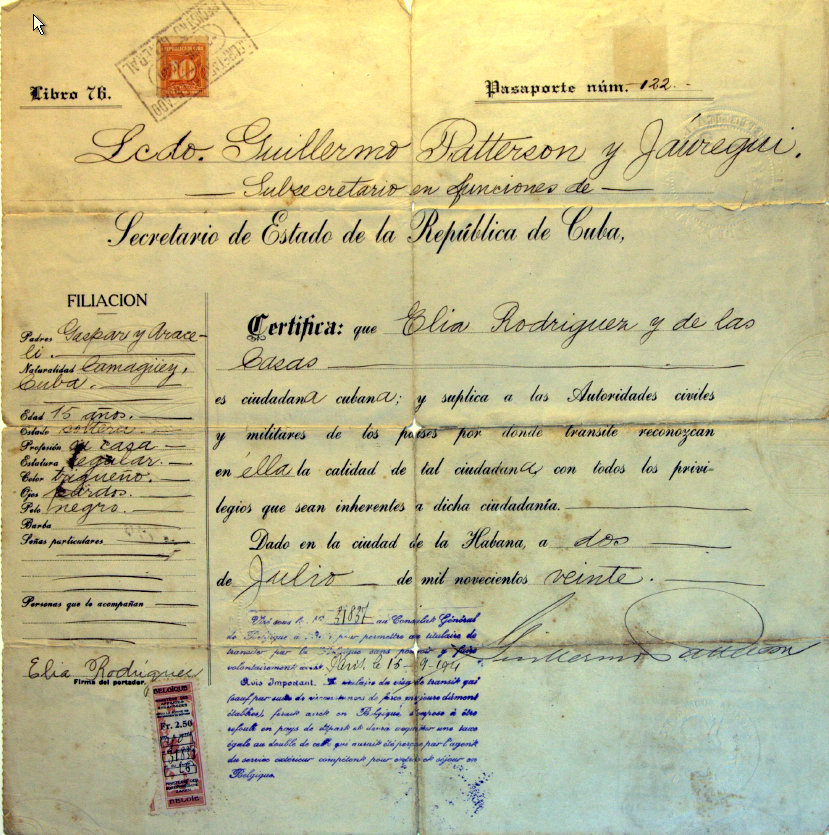 REPUBLICA DE CUBA
10
Libro 76.
Pasaporte núm. 122.-
Lcdo. Guillermo Patterson y Jáuregui.
— Subsecretario en funciones de —
Secretario de Estado de la República de Cuba,
FILIACION
Padres Gaspar y Arace-
li.
Naturalidad Camagüey,
Cuba.
Edad 15 años.
Estado soltera
Profesión su casa
Estatura regular.
Color trigueño.
Ojos pardos.
Pelo negro.
Barba
Señas particulares
Personas que le acompañan
Elia Rodríguez
Firma del portador.
Certifica: que Elia Rodriguez y de las
Casas
es ciudadana cubana; y suplica a las Autoridades civiles
y militares de los países por donde transite reconozcan
en ella la calidad de tal ciudadana, con todos los privi-
legios que sean inherentes a dicha ciudadanía.
Dado en la ciudad de la Habana, a dos
de Julio de mil novecientos veinte.
Guillermo Patterson
31837 au Consulat Général
de Belgique à Paris pour permettre au titulaire de
transiter par la Belgique sans
volontairement Paris, le 15-9-1921
Avis Important. Le titulaire du visa de transit qui
(sauf par suite de circonstances de force majeure dûment
établies), ferait arrêt en Belgique, s'expose à être
refoulé en pays de départ et devra acquitter une taxe
égale au double de celle qui aurait été perçue par l'agent
du service extérieur compétent pour entrée et séjour en
Belgique.
BELGIQUE
Fr. 2.50
BELGIË